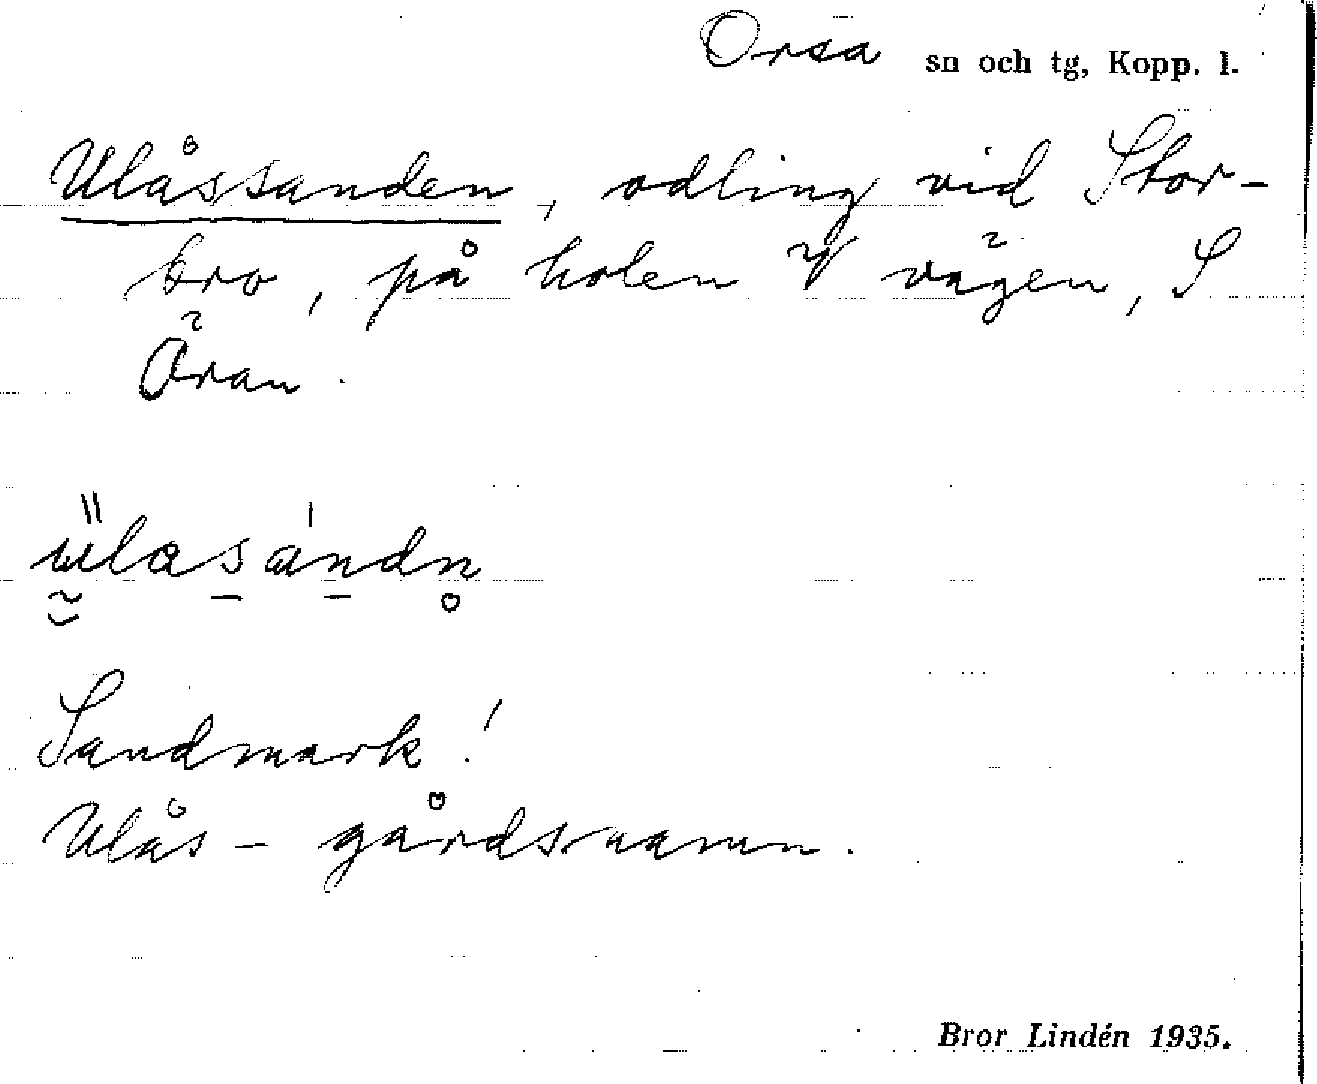 Orsa sn och tg, Kopp. l.
Ulåssanden, odling vid Stor-
bro, på holen V vägen, S
Öran.
Sandmark!
Ulås - gårdsnamn.
Bror Lindén 1935.